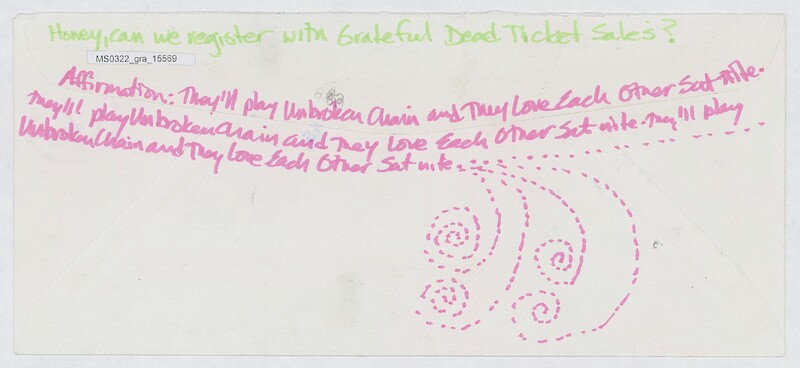 Honey, can we register with Grateful Dead Ticket Sales?
MS0322_gra_15569
Affirmation: They'll play Unbroken Chain and They Love Each Other Sat nite.
They'll play Unbroken Chain and They Love Each Other Sat nite. They'll play
Unbroken Chain and They Love Each Other Sat nite.